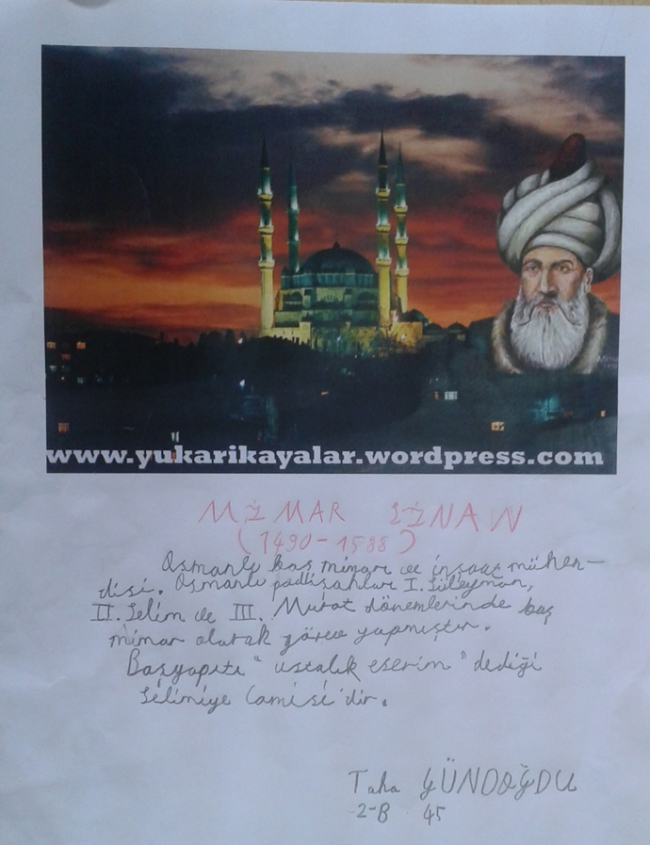 www.yukarikayalar.wordpress.com
MİMAR SİNAN
(1490-1588)
Osmanlı baş mimarı ve inşaat mühen-
disi. Osmanlı padişahları I. Süleyman,
II. Selim ve III. Murat dönemlerinde baş
mimar olarak görev yapmıştır.
Başyapıtı "ustalık eserim" dediği
Selimiye Camisi'dir.
Taha GÜNDOĞDU
2-B 45